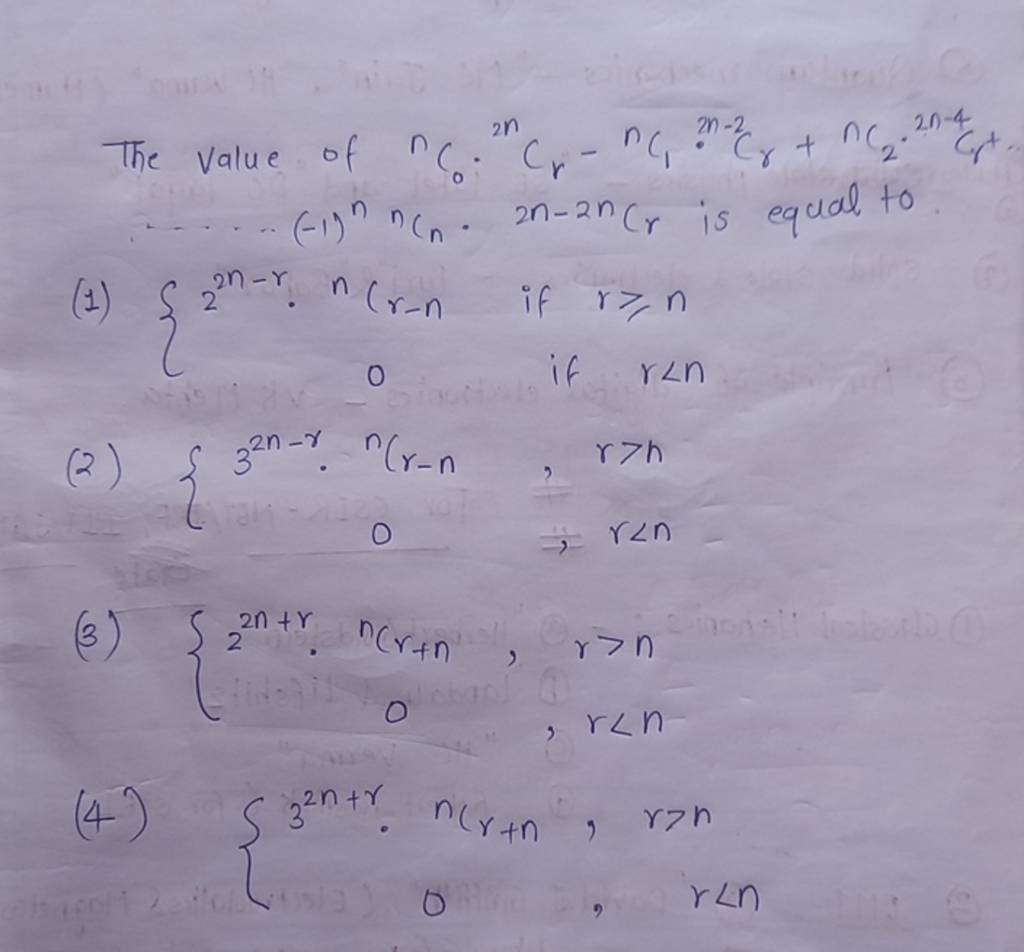 The value of ⁿC₀ . ²ⁿCᵣ - ⁿC₁ . ²ⁿ⁻²Cᵣ + ⁿC₂ . ²ⁿ⁻⁴Cᵣ + ..
...... (-1)ⁿ ⁿCₙ . ²ⁿ⁻²ⁿCᵣ is equal to .
(1) { 2²ⁿ⁻ʳ . ⁿCᵣ₋ₙ if r ≥ n
0 if r < n
(2) { 3²ⁿ⁻ʳ . ⁿCᵣ₋ₙ , r > n
0 , r < n
(3) { 2²ⁿ⁺ʳ . ⁿCᵣ₊ₙ , r > n
0 , r < n
(4) { 3²ⁿ⁺ʳ . ⁿCᵣ₊ₙ , r > n
0 , r < n